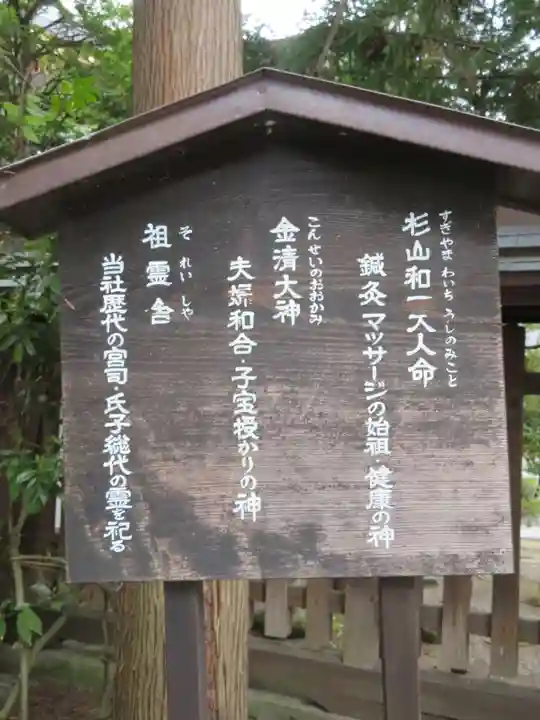 すぎやま わいち うしのみこと
杉山和一大人命
鍼灸マッサージの始祖 健康の神
こんせいのおおかみ
金清大神
夫婦和合・子宝授かりの神
それいしゃ
祖霊舎
当社歴代の宮司・氏子総代の霊を祀る